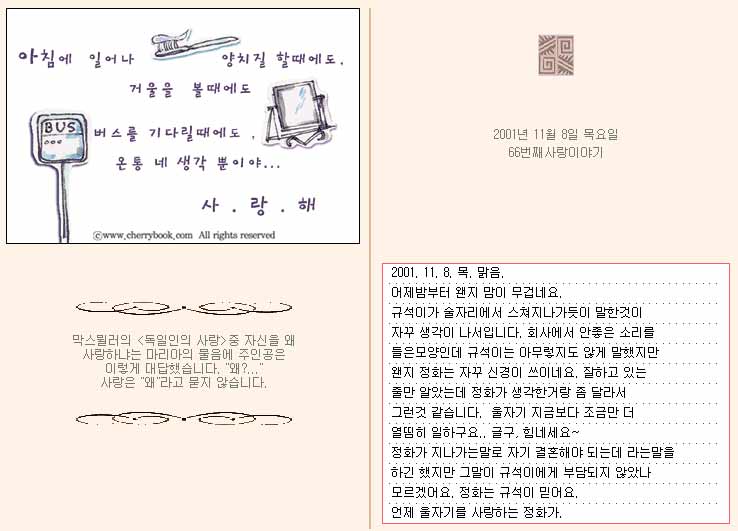 아침에 일어나 양치질 할때에도,
거울을 볼때에도
BUS
버스를 기다릴때에도,
온통 네 생각 뿐이야...
사 . 랑 . 해
ⓒwww.cherrybook.com All rights reserved
막스뮐러의 <독일인의 사랑>중 자신을 왜
사랑하냐는 마리아의 물음에 주인공은
이렇게 대답했습니다. "왜?..."
사랑은 "왜"라고 묻지 않습니다.
2001년 11월 8일 목요일
66번째사랑이야기
2001. 11. 8. 목. 맑음.
어제밤부터 왠지 맘이 무겁네요.
규석이가 술자리에서 스쳐지나가듯이 말한것이
자꾸 생각이 나서입니다. 회사에서 안좋은 소리를
들은모양인데 규석이는 아무렇지도 않게 말했지만
왠지 정화는 자꾸 신경이 쓰이네요. 잘하고 있는
줄만 알았는데 정화가 생각한거랑 좀 달라서
그런것 같습니다. 울자기 지금보다 조금만 더
열띰히 일하구요.. 글구, 힘네세요~
정화가 지나가는말로 자기 결혼해야 되는데 라는말을
하긴 했지만 그말이 규석이에게 부담되지 않았나
모르겠어요. 정화는 규석이 믿어요.
언제 울자기를 사랑하는 정화가.